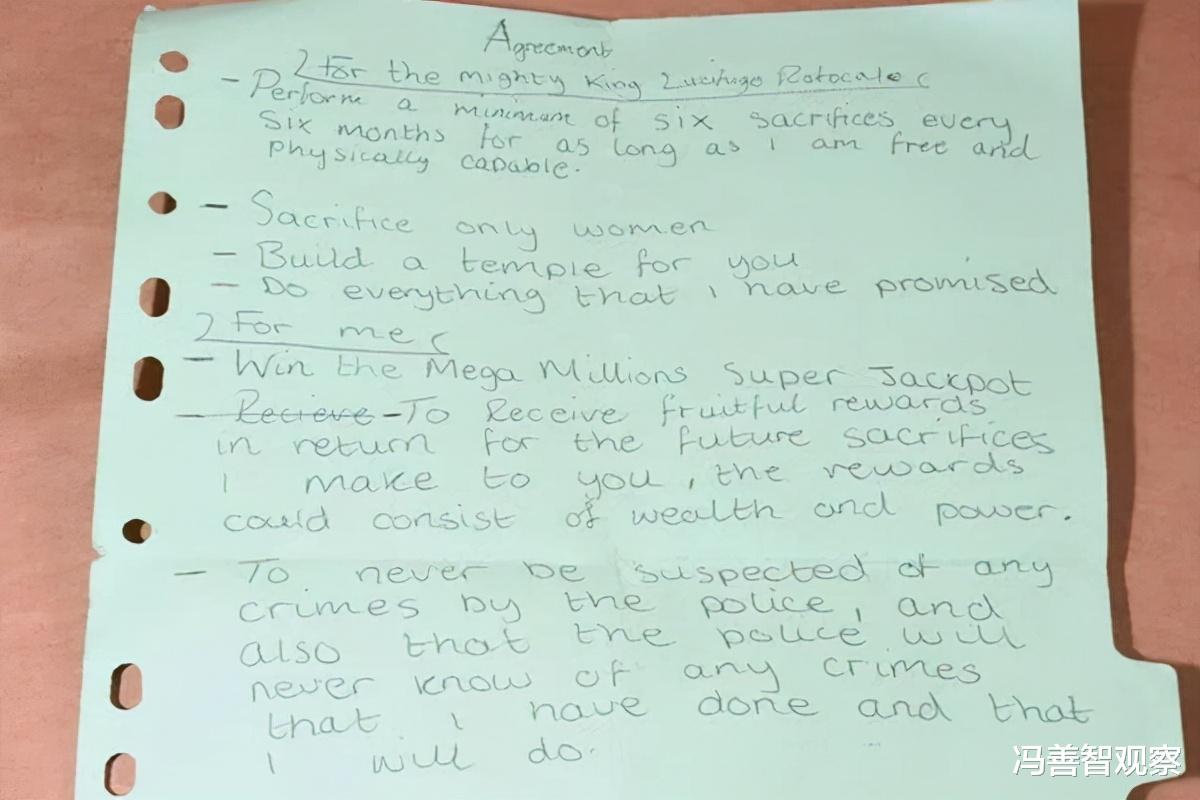 Agreement
For the mighty King Lucifuge Rofocale
- Perform a minimum of six sacrifices every
six months for as long as I am free and
physically capable.
- Sacrifice only women
- Build a temple for you
- Do everything that I have promised
For me
- Win the Mega Millions Super Jackpot
- Recieve - To Receive fruitful rewards
in return for the future sacrifices
I make to you, the rewards
could consist of wealth and power.
- To never be suspected of any
crimes by the police, and
also that the police will
never know of any crimes
that I have done and that
I will do.
冯善智观察